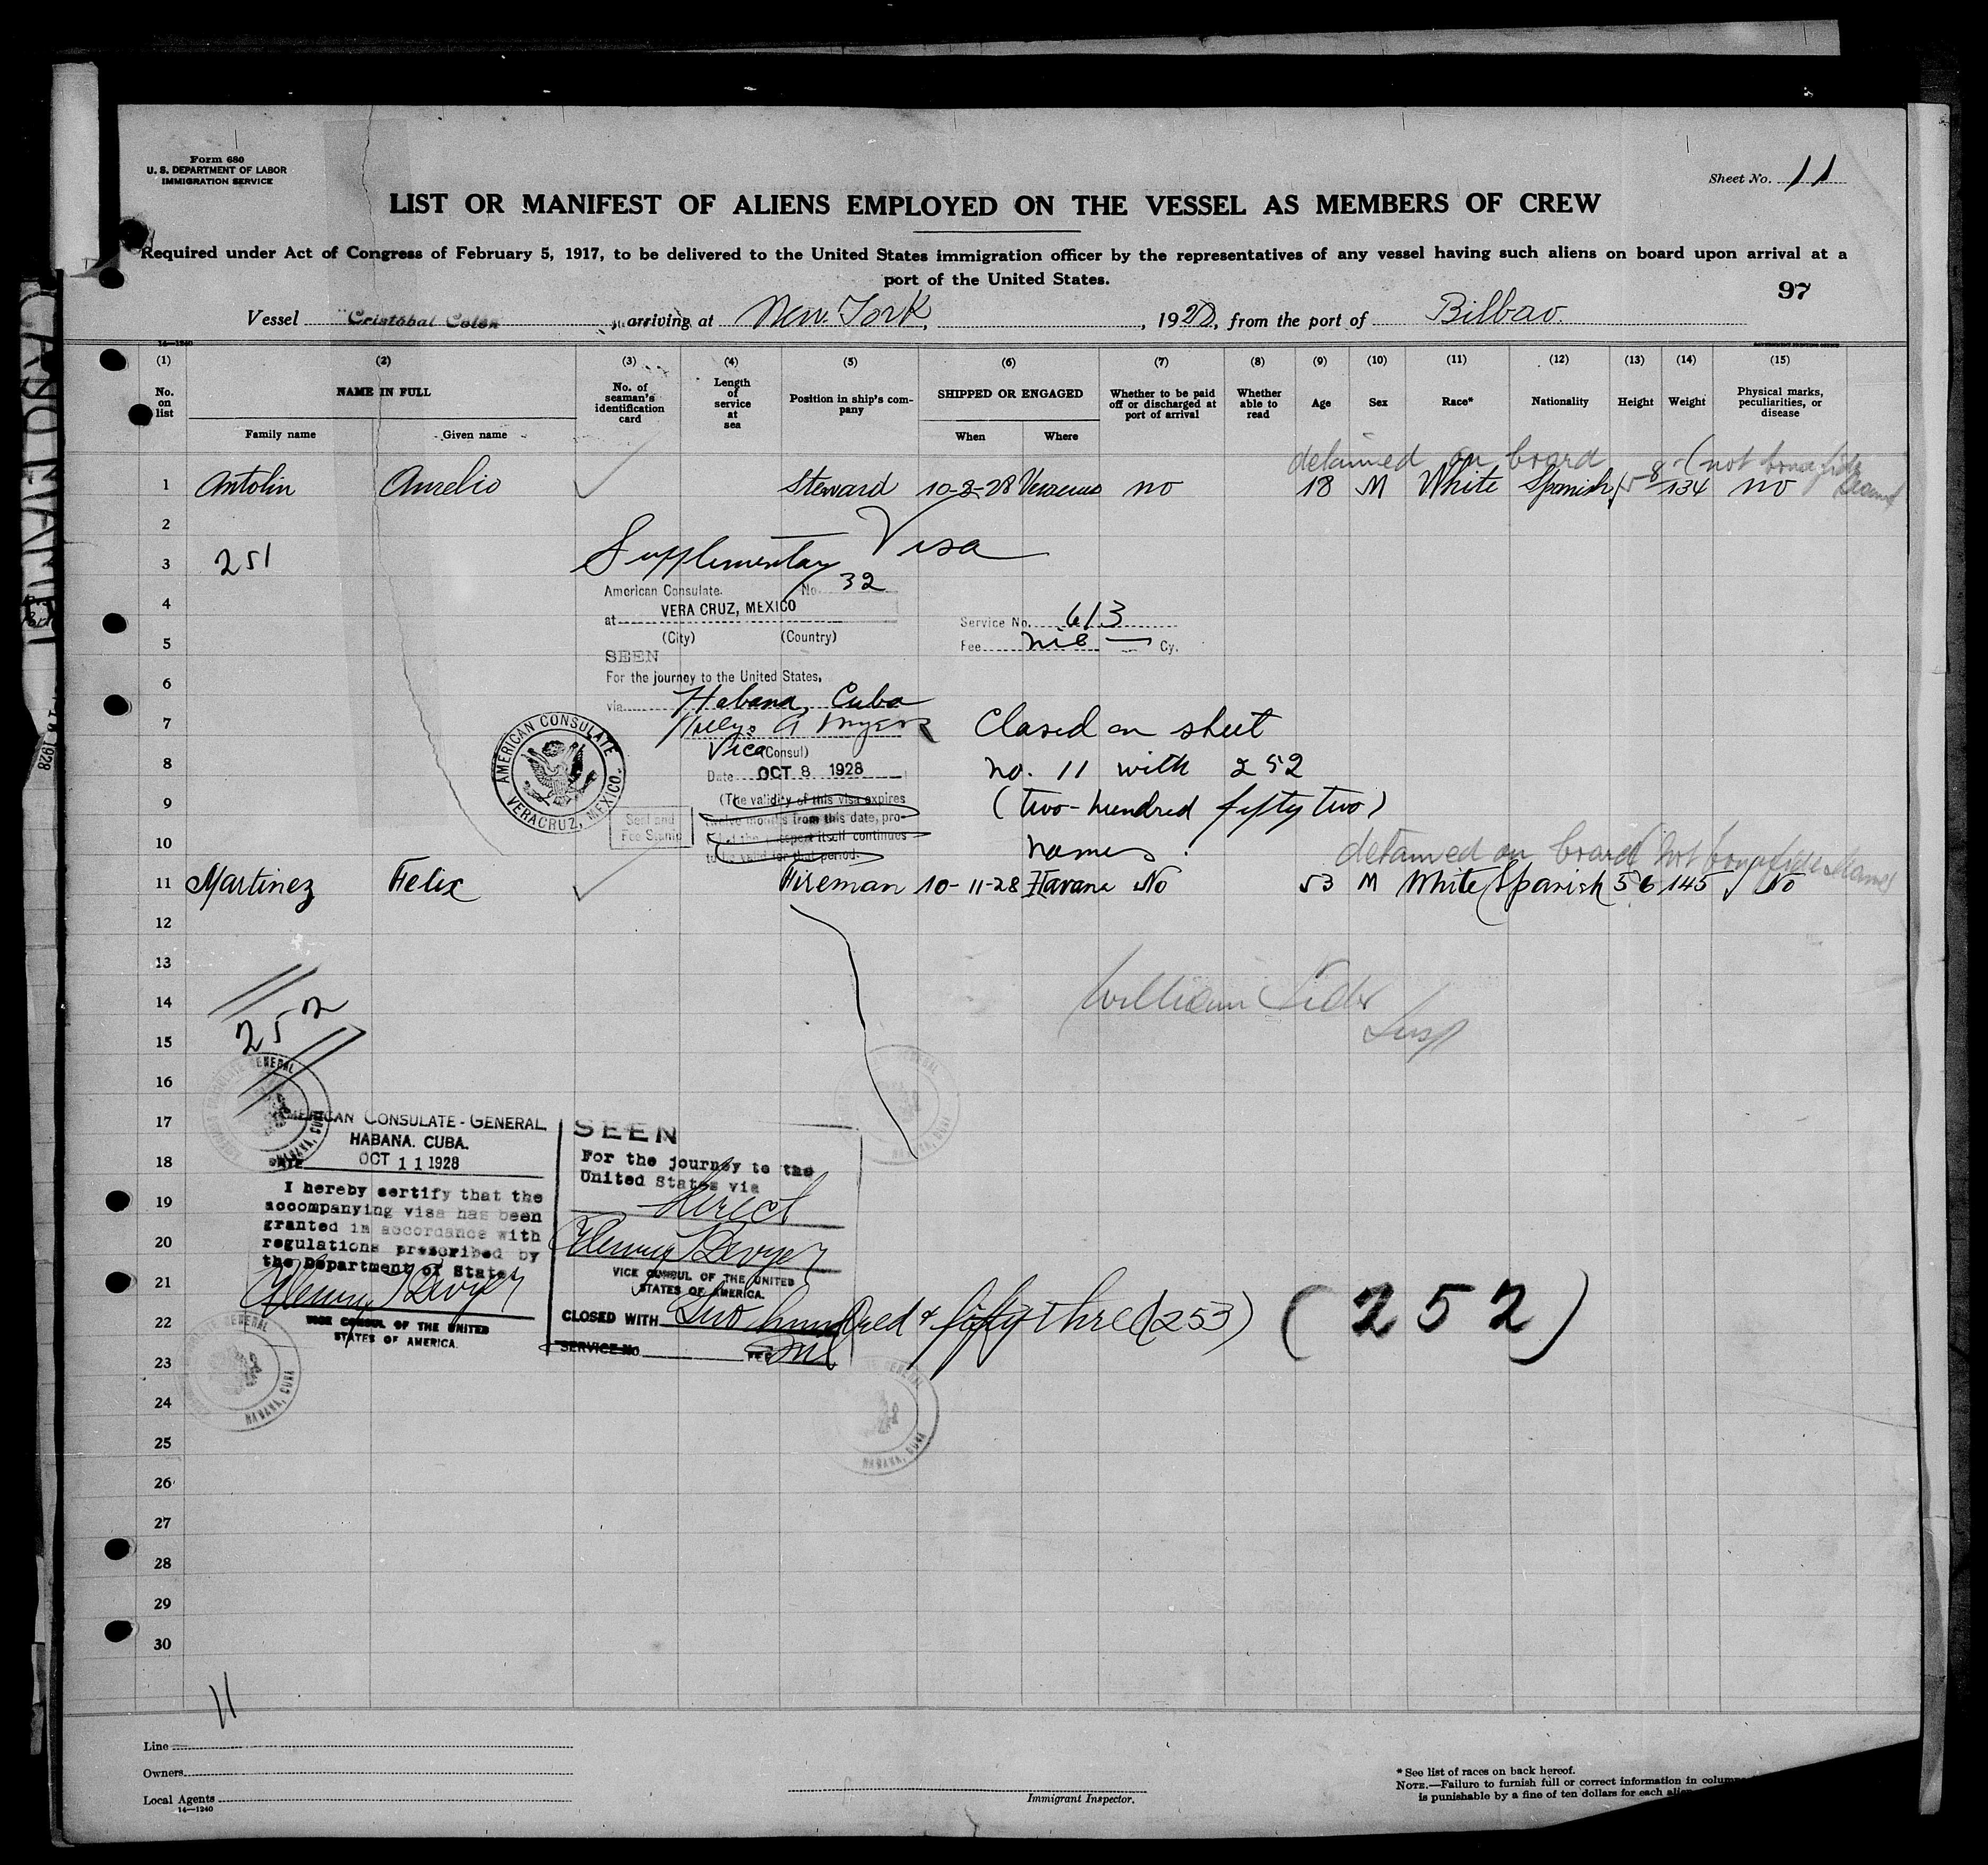 Form 680
U. S. DEPARTMENT OF LABOR
IMMIGRATION SERVICE
Sheet No. 11
LIST OR MANIFEST OF ALIENS EMPLOYED ON THE VESSEL AS MEMBERS OF CREW
Required under Act of Congress of February 5, 1917, to be delivered to the United States immigration officer by the representatives of any vessel having such aliens on board upon arrival at a
port of the United States.
97
Vessel "Cristóbal Colón" arriving at New York, , 1928, from the port of Bilbao.
14—1240
(1) (2) (3) (4) (5) (6) (7) (8) (9) (10) (11) (12) (13) (14) (15)
No. on list NAME IN FULL No. of seaman's identification card Length of service at sea Position in ship's company SHIPPED OR ENGAGED Whether to be paid off or discharged at port of arrival Whether able to read Age Sex Race* Nationality Height Weight Physical marks, peculiarities, or disease
Family name Given name When Where
detained on board (not bona fide
1 Antolin Aurelio Steward 10-8-28 Veracruz no 18 M White Spanish 5-8 134 no
2
Supplementary Visa
3 251
American Consulate. No. 32
4
at VERA CRUZ, MEXICO
Service No. 613
(City) (Country)
5
Fee nil — Cy.
SEEN
For the journey to the United States,
6
via Habana, Cuba
7
A Myers
Closed on sheet
Vice (Consul)
8
no. 11 with 252
Date OCT 8 1928
AMERICAN CONSULATE
VERACRUZ, MEXICO.
9
(The validity of this visa expires
(two-hundred fifty two)
Seal and
twelve months from this date, pro-
Fee Stamp
itself continues
10
to be valid for that period.
names.
detained on board (not bona fide
11 Martinez Felix Fireman 10-11-28 Havana No 53 M White Spanish 5 6 145 No
12
13
14
William
252
15
Insp
16
17
AMERICAN CONSULATE-GENERAL
HABANA. CUBA.
18
DATE OCT 11 1928
SEEN
For the journey to the
United States via
I hereby certify that the
19
accompanying visa has been
direct
granted in accordance with
20
regulations prescribed by
the Department of State.
VICE CONSUL OF THE UNITED
STATES OF AMERICA.
21
22
CLOSED WITH Two hundred & fifty three (253)
(252)
VICE CONSUL OF THE UNITED
STATES OF AMERICA.
SERVICE NO. FEE Nil
23
HABANA, CUBA
24
25
26
27
28
29
30
11
Line
Owners
Local Agents
14—1240
Immigrant Inspector.
* See list of races on back hereof.
NOTE.—Failure to furnish full or correct information in
is punishable by a fine of ten dollars for each